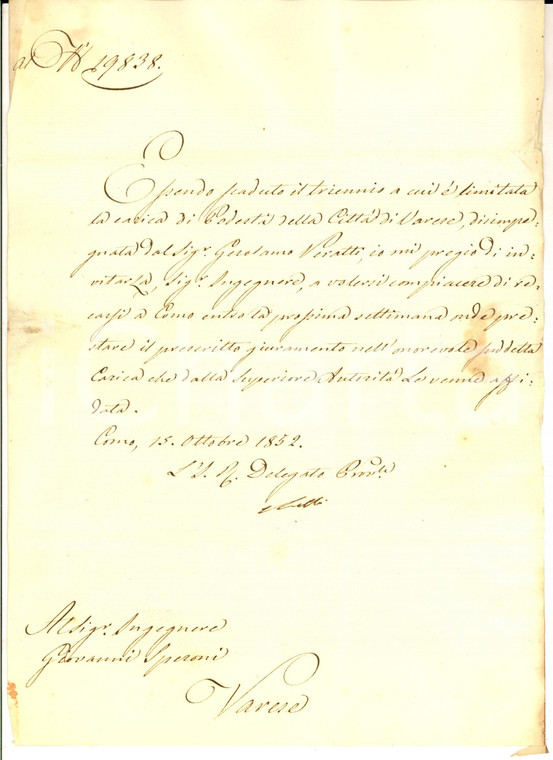 al N° 19838.
Essendo scaduto il triennio a cui è limitata
la carica di Podestà della Città di Varese, disimpe-
gnata dal Sigr. Gerolamo Peratti, io mi pregio di in-
vitarLa, Sigr. Ingegnere, a volersi compiacere di re-
carsi a Como entro la prossima settimana onde pre-
stare il prescritto giuramento nell'onorevole suddetta
Carica che dalla Superiore Autorità Le venne affi-
data.
Como, 15. Ottobre 1852.
L'I. R. Delegato Provle.
Al Sigr. Ingegnere
Giovanni Speroni
Varese